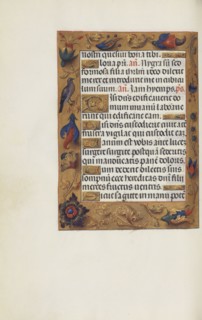 nostri quesiui bona tibi.
Gloria p̄ri. an̄. Nigra sū sed
formosa filia ihrlm ideo dilexit
me rex et introduxit me in cubicu
lum suum. an̄. Iam hyemps. ps.
Nisi dn̄s edificauerit do
mum in uanū laboraue
runt qui edificant eam.
Nisi dn̄s custodierit ciuitatē
frustra vigilat qui custodit eam.
Vanum est uobis ante lucem
surgere surgite postquā sederitis
qui manducatis panē doloris.
Cum dederit dilectis suis
sompnū ecce hereditas dn̄i filii
merces fructus uentris.
Sicut sagitte in manu potē